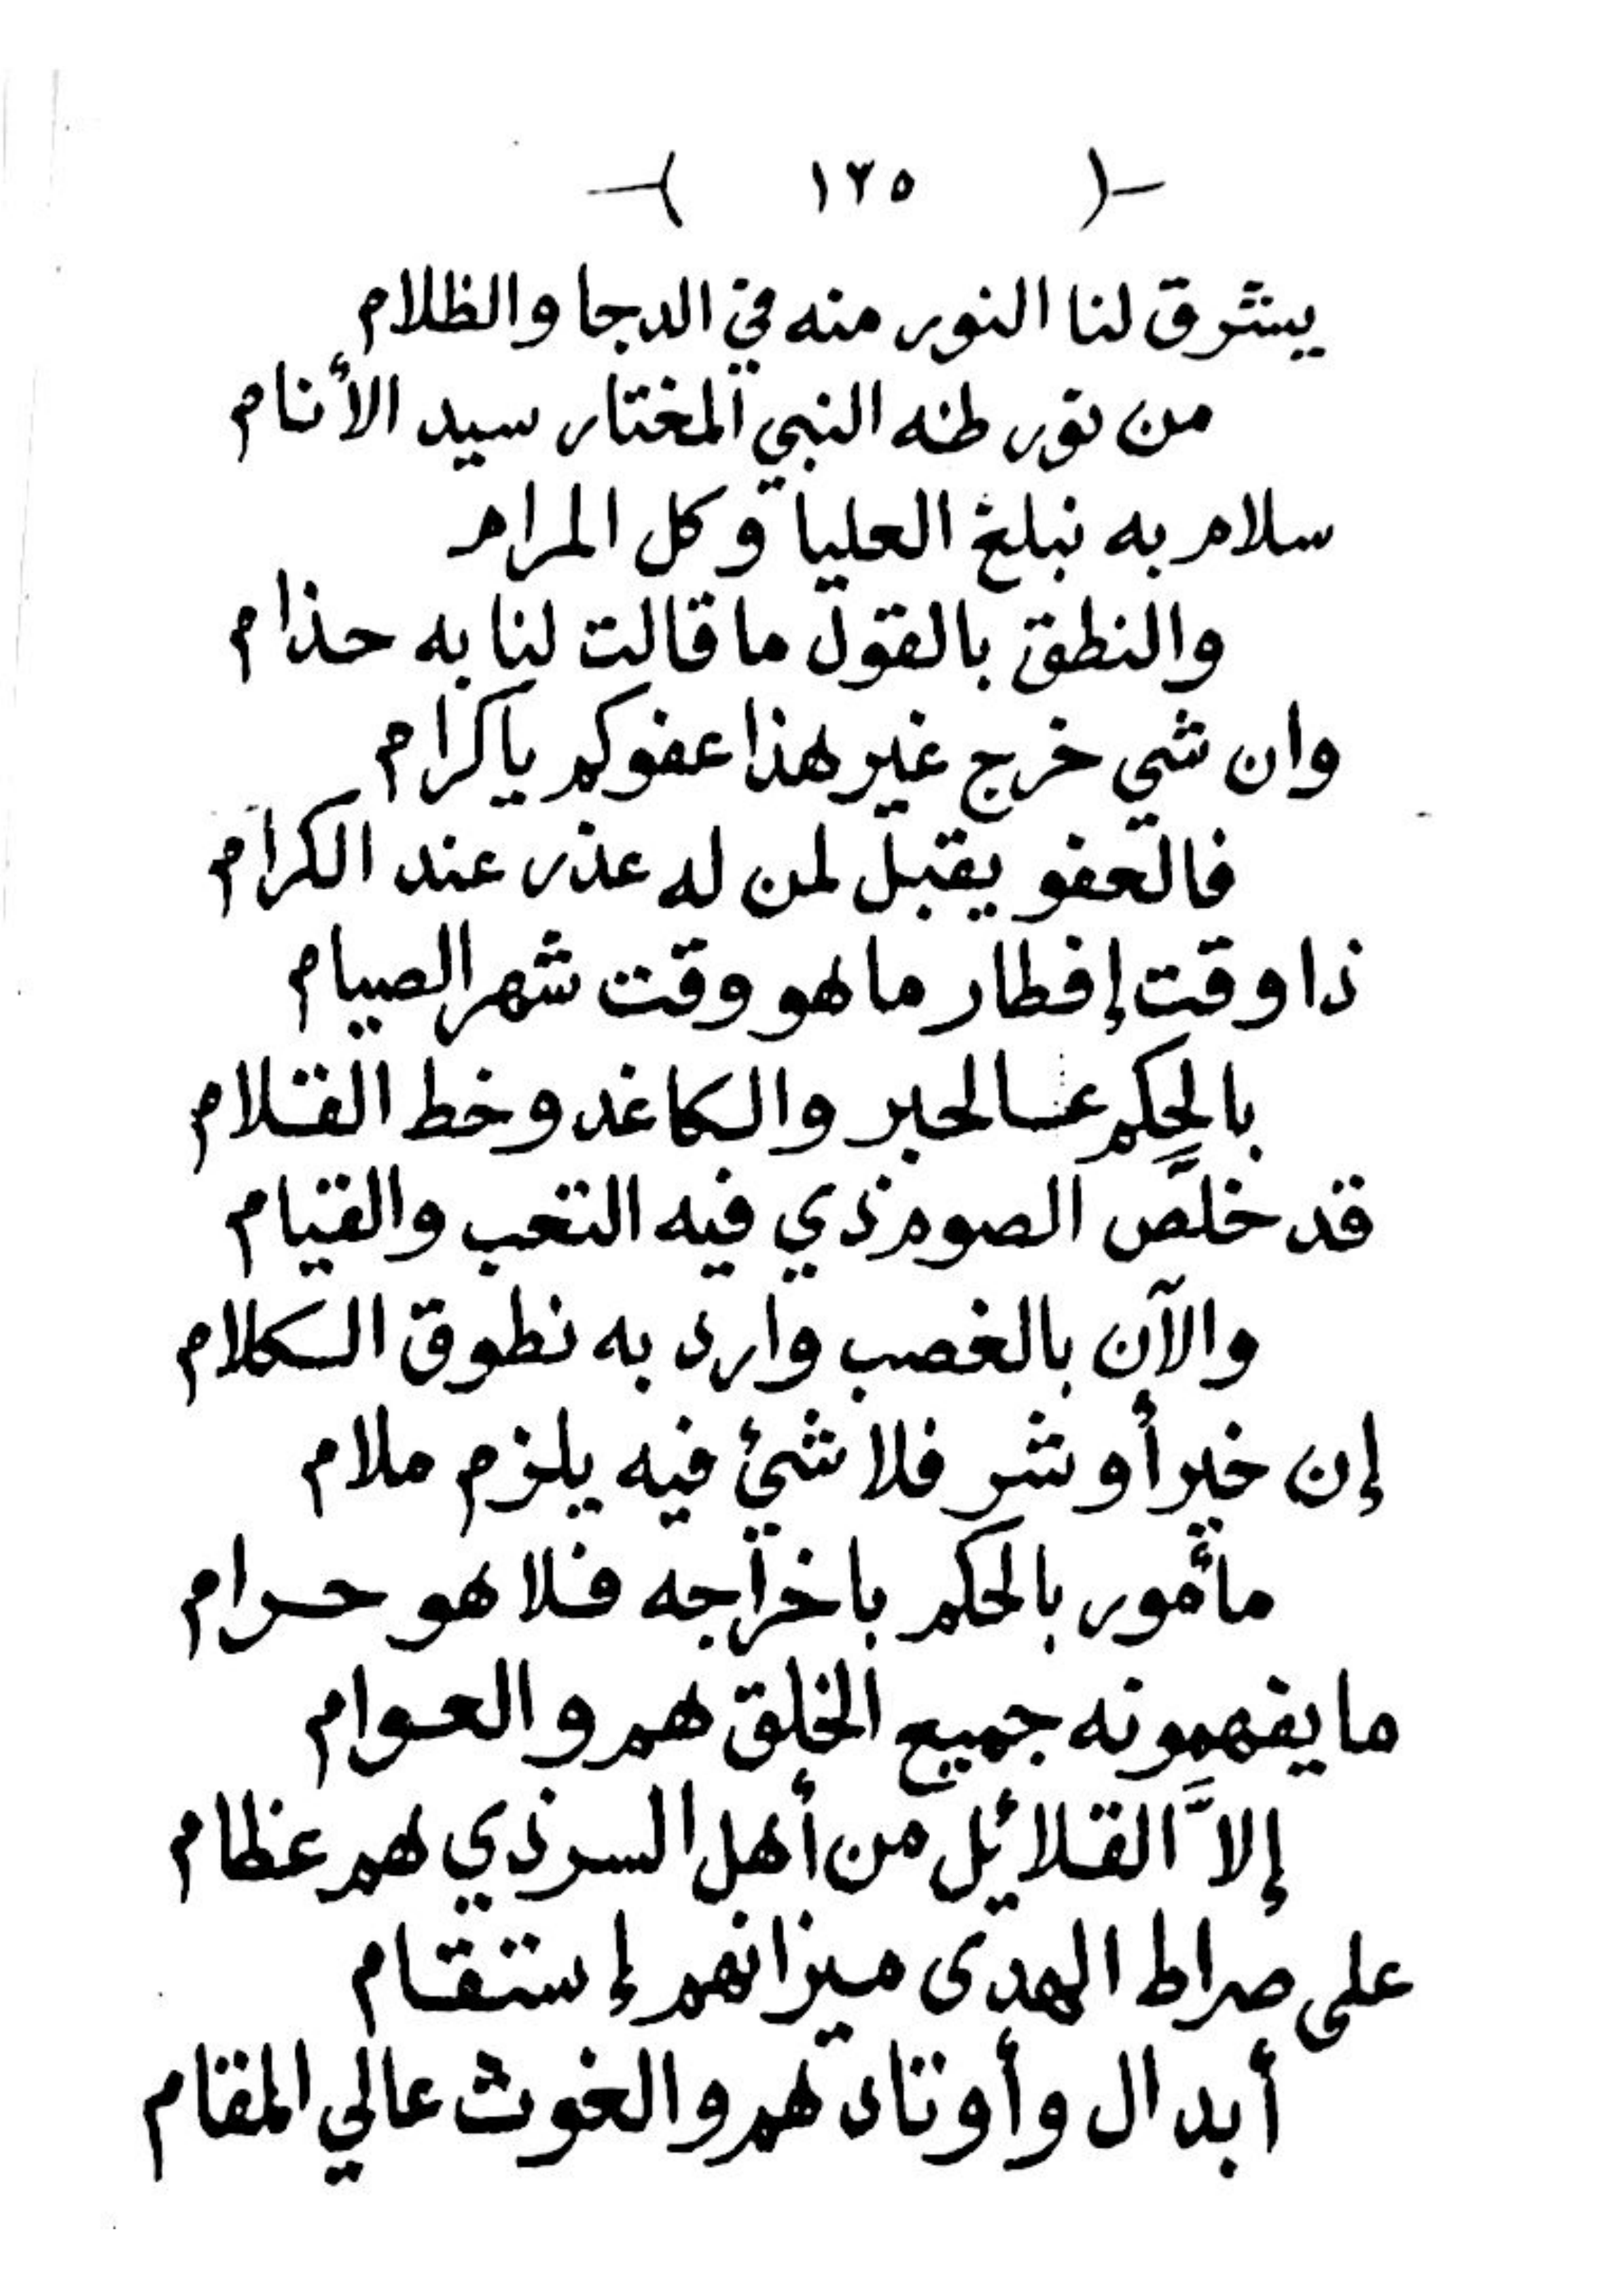 ( ١٢٥ )
يشرق لنا النور منه في الدجا والظلام
من نور طه النبي المختار سيد الأنام
سلام به نبلغ العليا وكل المرام
والنطق بالقول ما قالت لنا به حذام
وان شي خرج غير هذا عفوكم ياكرام
فالعفو يقبل لمن له عذر عند الكرام
ذا وقت إفطار ما هو وقت شهر الصيام
بالحِكم عالحبر والكاغد وخط القلام
قد خلَّص الصوم ذي فيه التعب والقيام
والآن بالغصب وارد به نطوق الكلام
إن خير أو شر فلا شئ فيه يلزم ملام
مأمور بالحكم باخراجه فلا هو حرام
ما يفهمونه جميع الخلق هم والعوام
إلاَّ القلائل من أهل السر ذي هم عظام
على صراط الهدى ميزانهم إستقام
أبدال وأوتاد هم والغوث عالي المقام